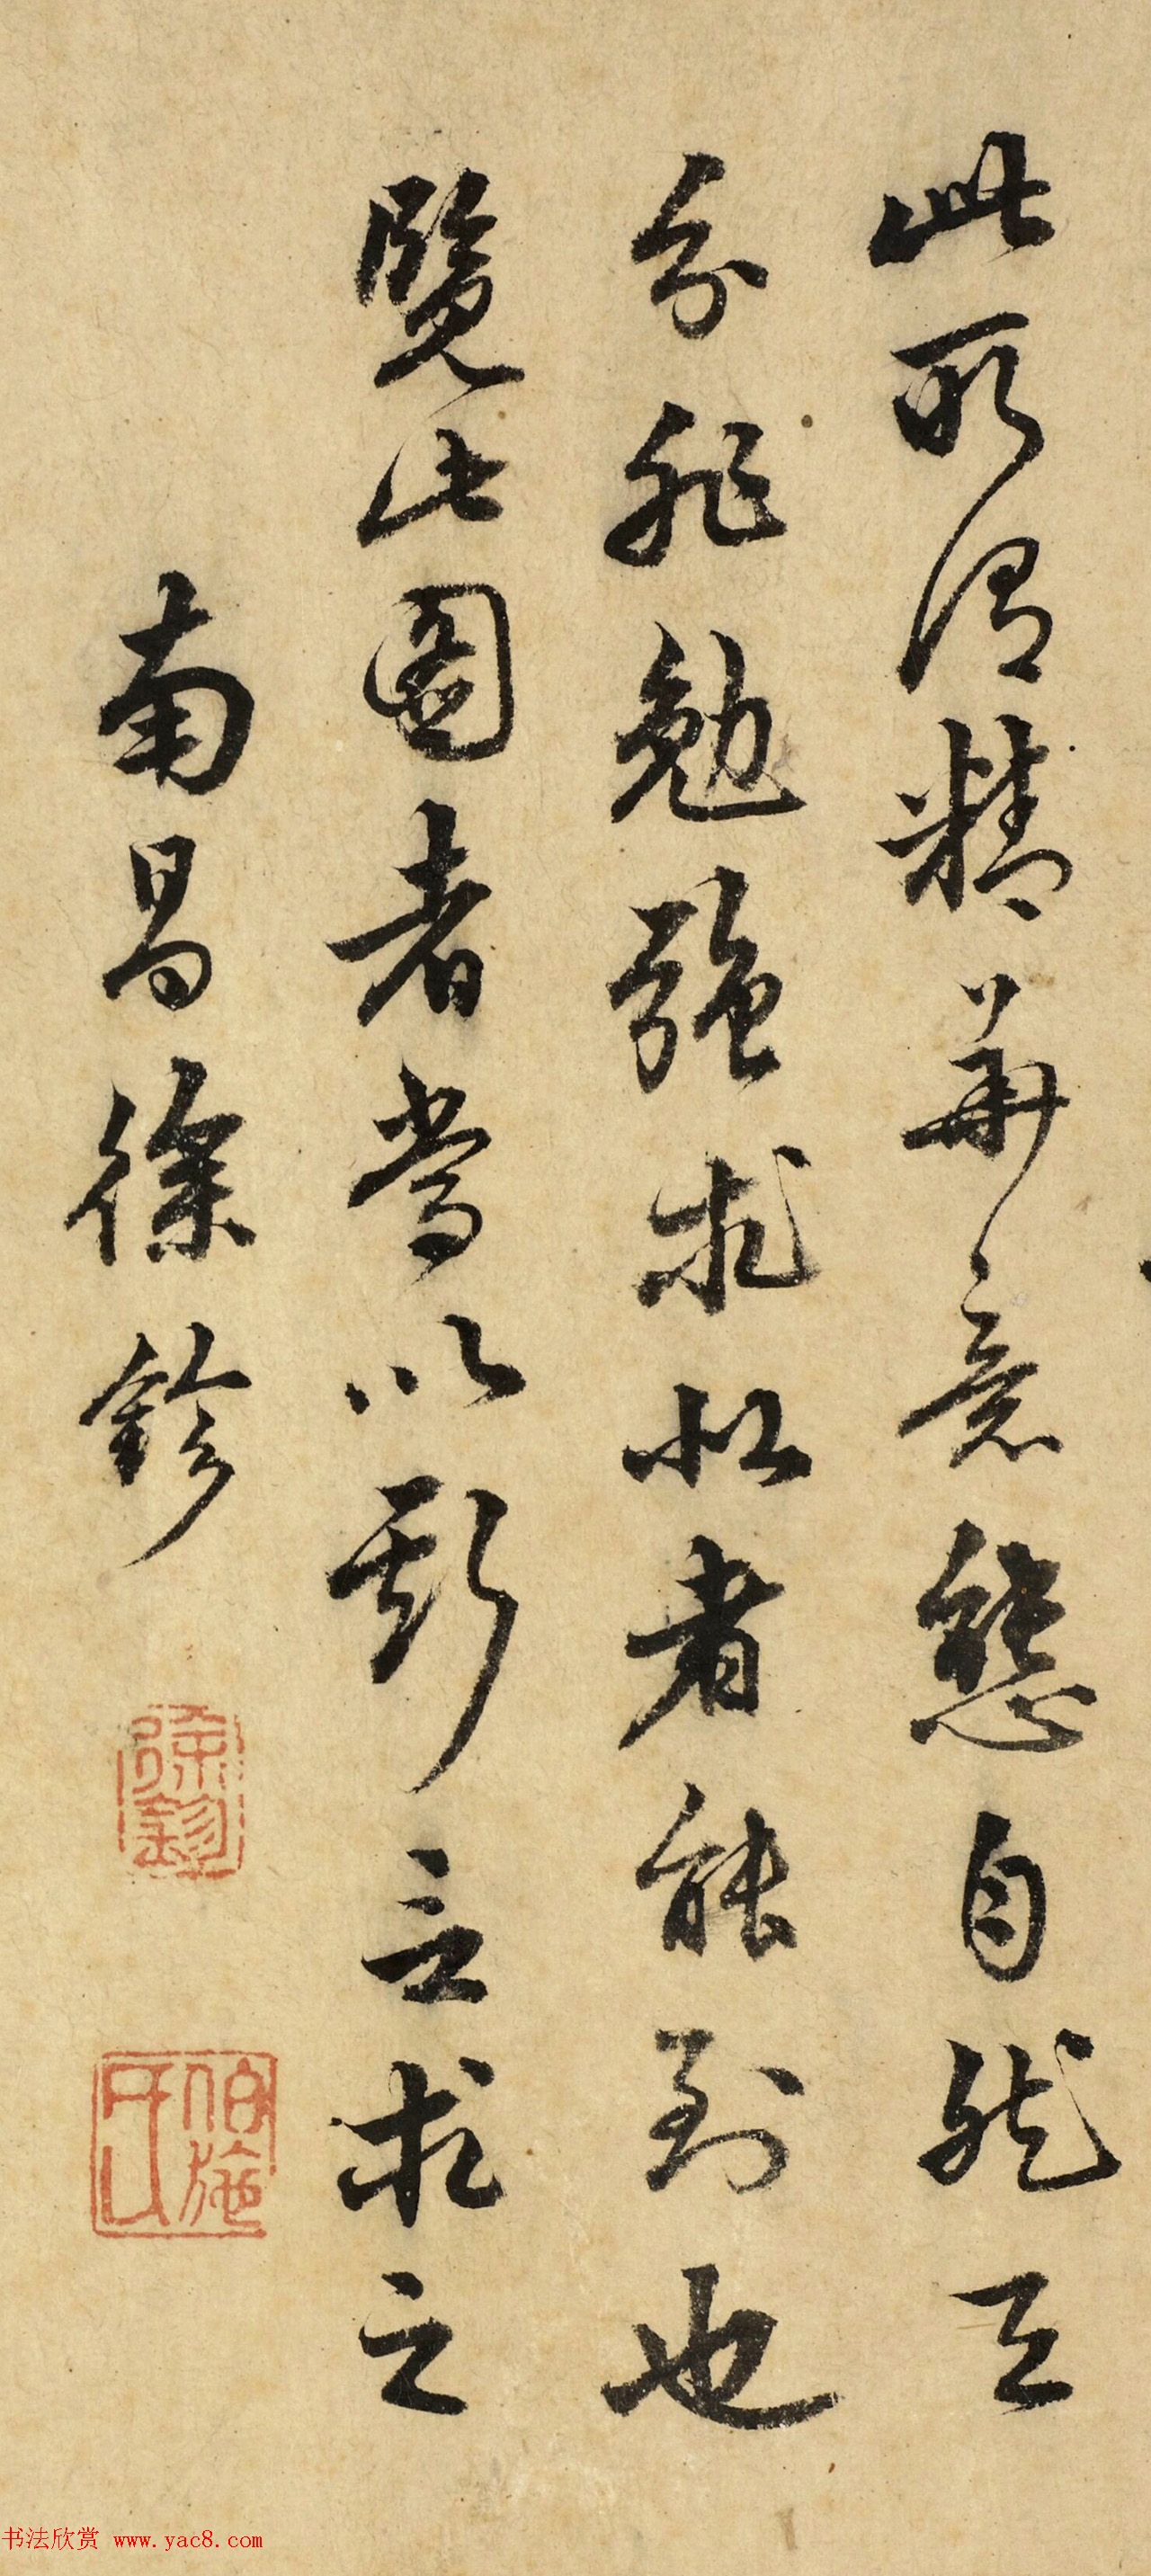 此所謂精華意態自然天
分非勉強求似者能到也
覽此圖者當以斯言求之
南昌徐鉁
徐鉁
伯施
书法欣赏 www.yac8.com